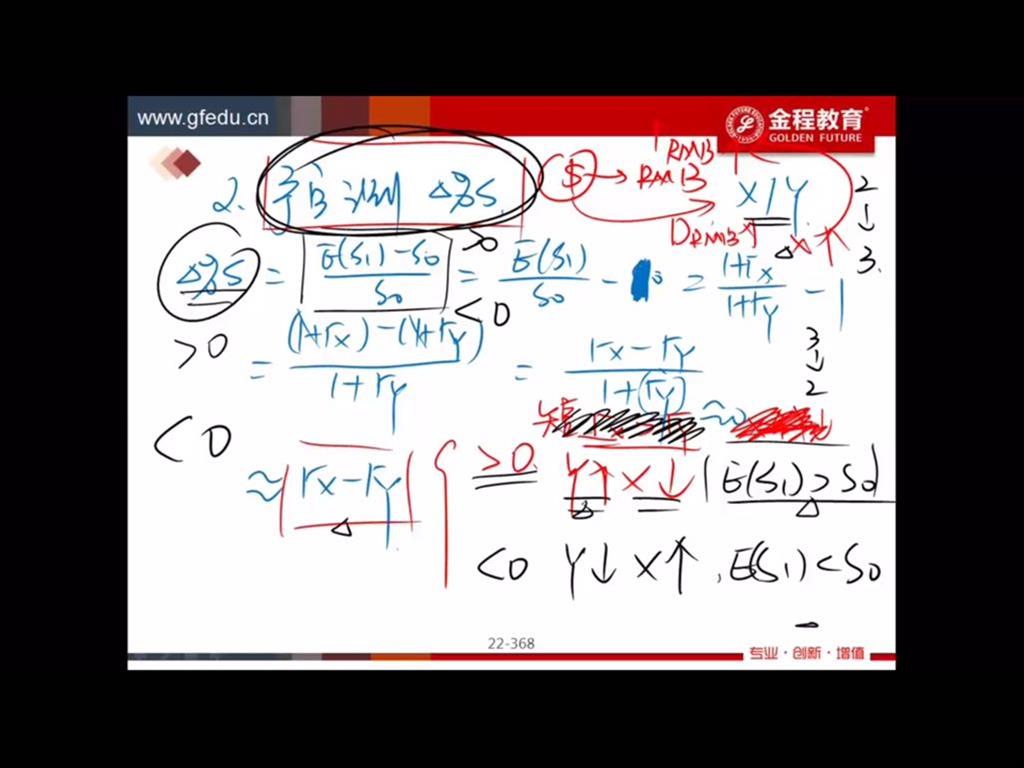 www.gfedu.cn
金程教育
GOLDEN FUTURE
RMB ↑
2. 预测 Δ%S $ → RMB X/Y 2
D RMB↑ X↑ ↓
3.
Δ%S = E(S1)-S0 / S0 = E(S1) / S0 - 1 = 1+rx / 1+ry - 1
>0
<0
>0 = (1+rx)-(1+ry) / 1+ry = rx-ry / 1+(ry) 3
↓
2
<0 短 ≈
≈ |rx-ry| { >0 Y↑ X↓ | E(S1)>S0|
<0 Y↓ X↑, E(S1)<S0
22-368
专业·创新·增值